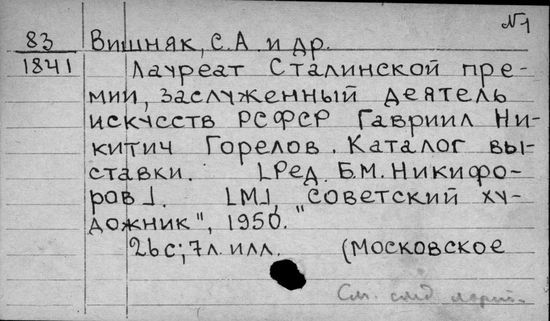 №1
83
1841
Вишняк, С.А. и др.
Лауреат Сталинской пре-
мии, заслуженный деятель
искусств РСФСР Гавриил Ни-
китич Горелов. Каталог вы-
ставки. [Ред. Б.М. Никифо-
ров]. [М], "Советский ху-
дожник", 1950.
26с; 7л. илл. (Московское
См. след